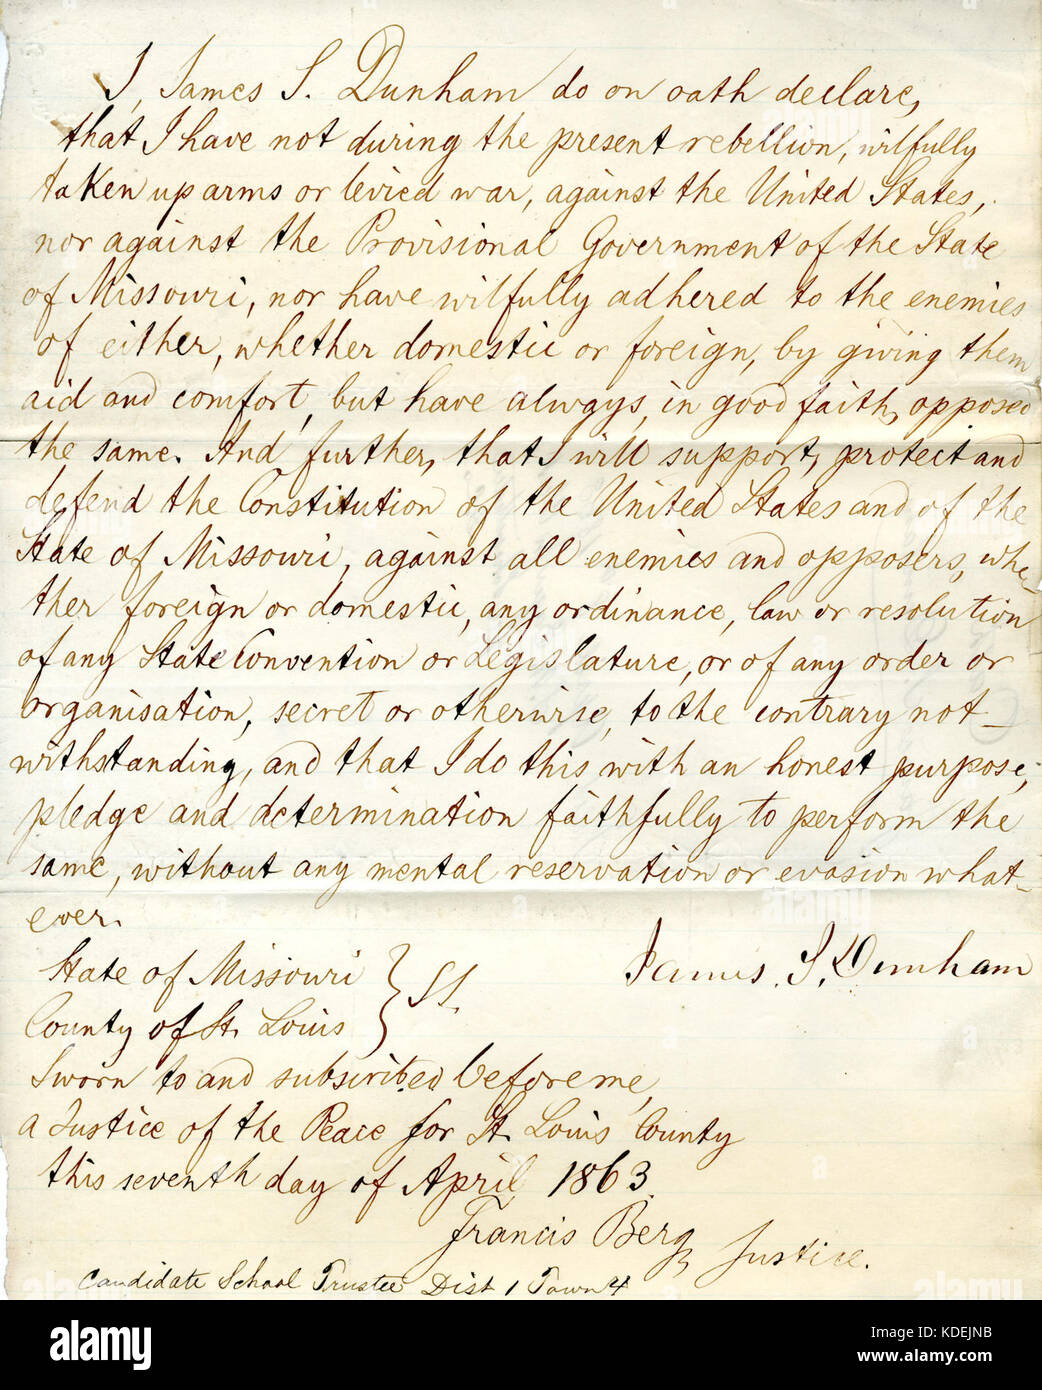 I, James S. Dunham do on oath declare,
that I have not during the present rebellion, wilfully
taken up arms or levied war, against the United States,
nor against the Provisional Government of the State
of Missouri, nor have wilfully adhered to the enemies
of either, whether domestic or foreign, by giving them
aid and comfort, but have always, in good faith, opposed
the same. And further, that I will support, protect and
defend the Constitution of the United States and of the
State of Missouri, against all enemies and opposers, whe-
ther foreign or domestic, any ordinance, law or resolution
of any State Convention or Legislature, or of any order or
organisation, secret or otherwise, to the contrary not-
withstanding, and that I do this with an honest purpose,
pledge and determination faithfully to perform the
same, without any mental reservation or evasion what-
ever.
James. S. Dunham
State of Missouri } SS.
County of St. Louis
Sworn to and subscribed before me,
a Justice of the Peace for St. Louis County
this seventh day of April, 1863.
Francis Berg, Justice.
Candidate School Trustee Dist 1 Town 4
alamy
Image ID: KDEJNB
www.alamy.com